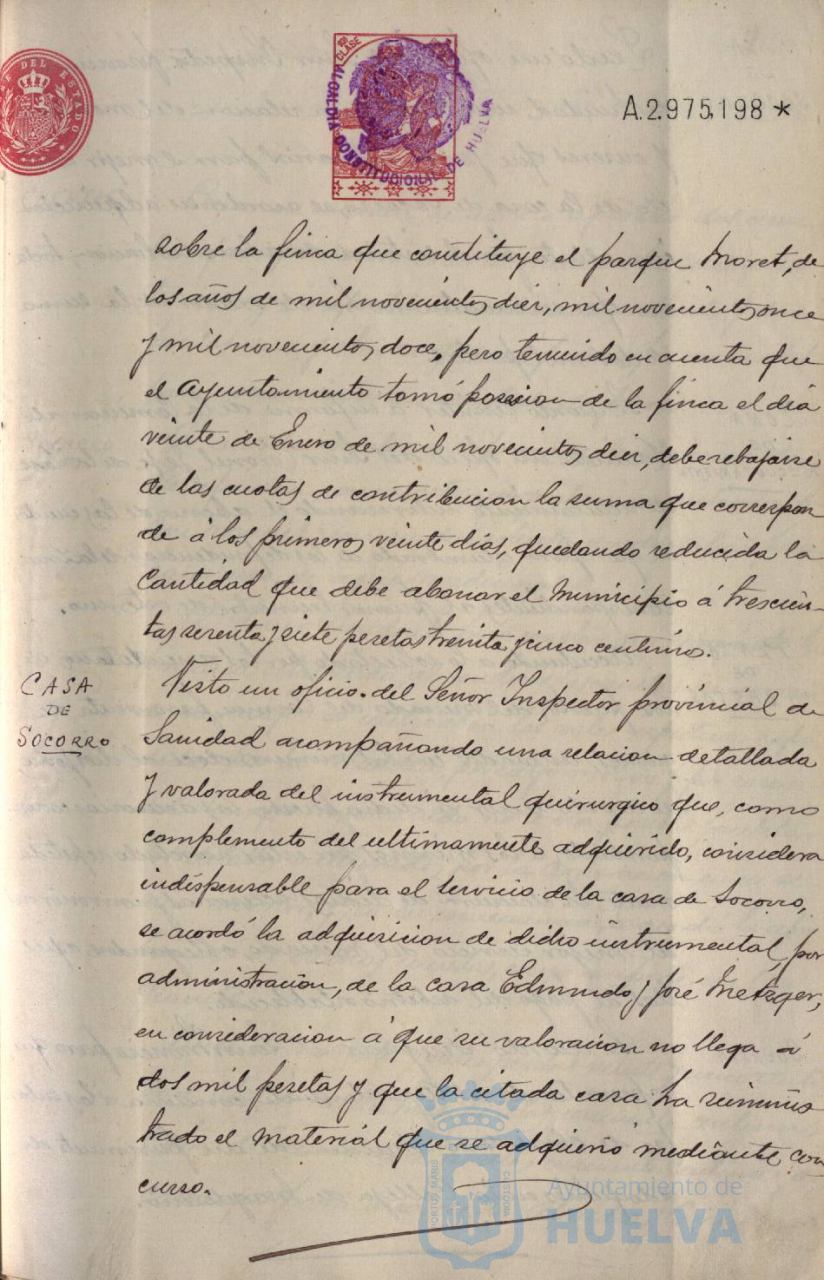 DEL ESTADO
10ª CLASE
ALCALDIA CONSTITUCIONAL DE HUELVA
A.2.975,198 *
sobre la finca que constituye el parque Moret, de
los años de mil novecientos diez, mil novecientos once
y mil novecientos doce, pero teniendo en cuenta que
el Ayuntamiento tomó posesion de la finca el dia
veinte de Enero de mil novecientos diez, debe rebajarse
de las cuotas de contribucion la suma que correspon
de á los primeros veinte dias, quedando reducida la
cantidad que debe abonar el Municipio á trescien-
tas sesenta y siete pesetas treinta y cinco centimos.
CASA
DE
SOCORRO
Visto un oficio del Señor Inspector provincial de
Sanidad acompañando una relacion detallada
y valorada del instrumental quirurgico que, como
complemento del ultimamente adquirido, considera
indispensable para el servicio de la casa de Socorro,
se acordó la adquisicion de dicho instrumental, por
administración, de la casa Edmundo y José Metzger,
en consideracion á que su valoracion no llega á
dos mil pesetas y que la citada casa ha suminis
trado el material que se adquirió mediante con
curso.
Ayuntamiento de
HUELVA